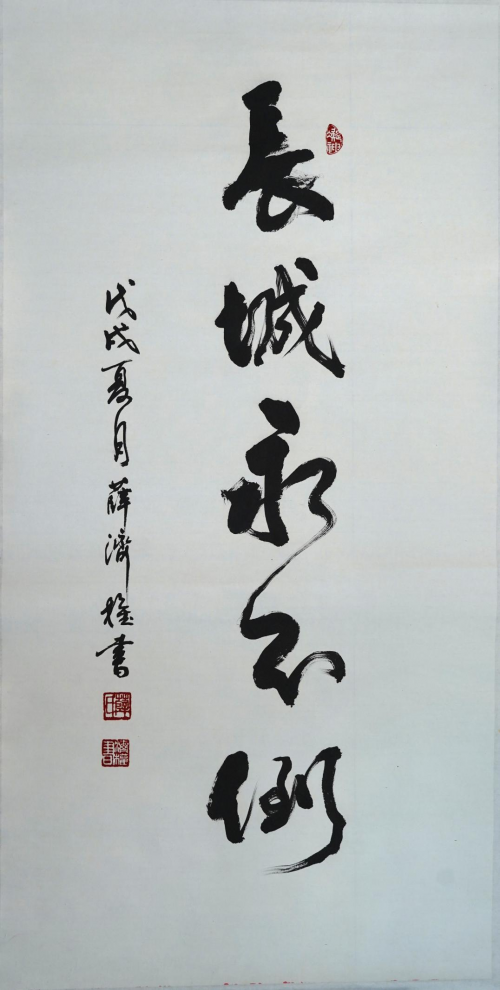 長城永不倒
戊戌夏月薛濟權書